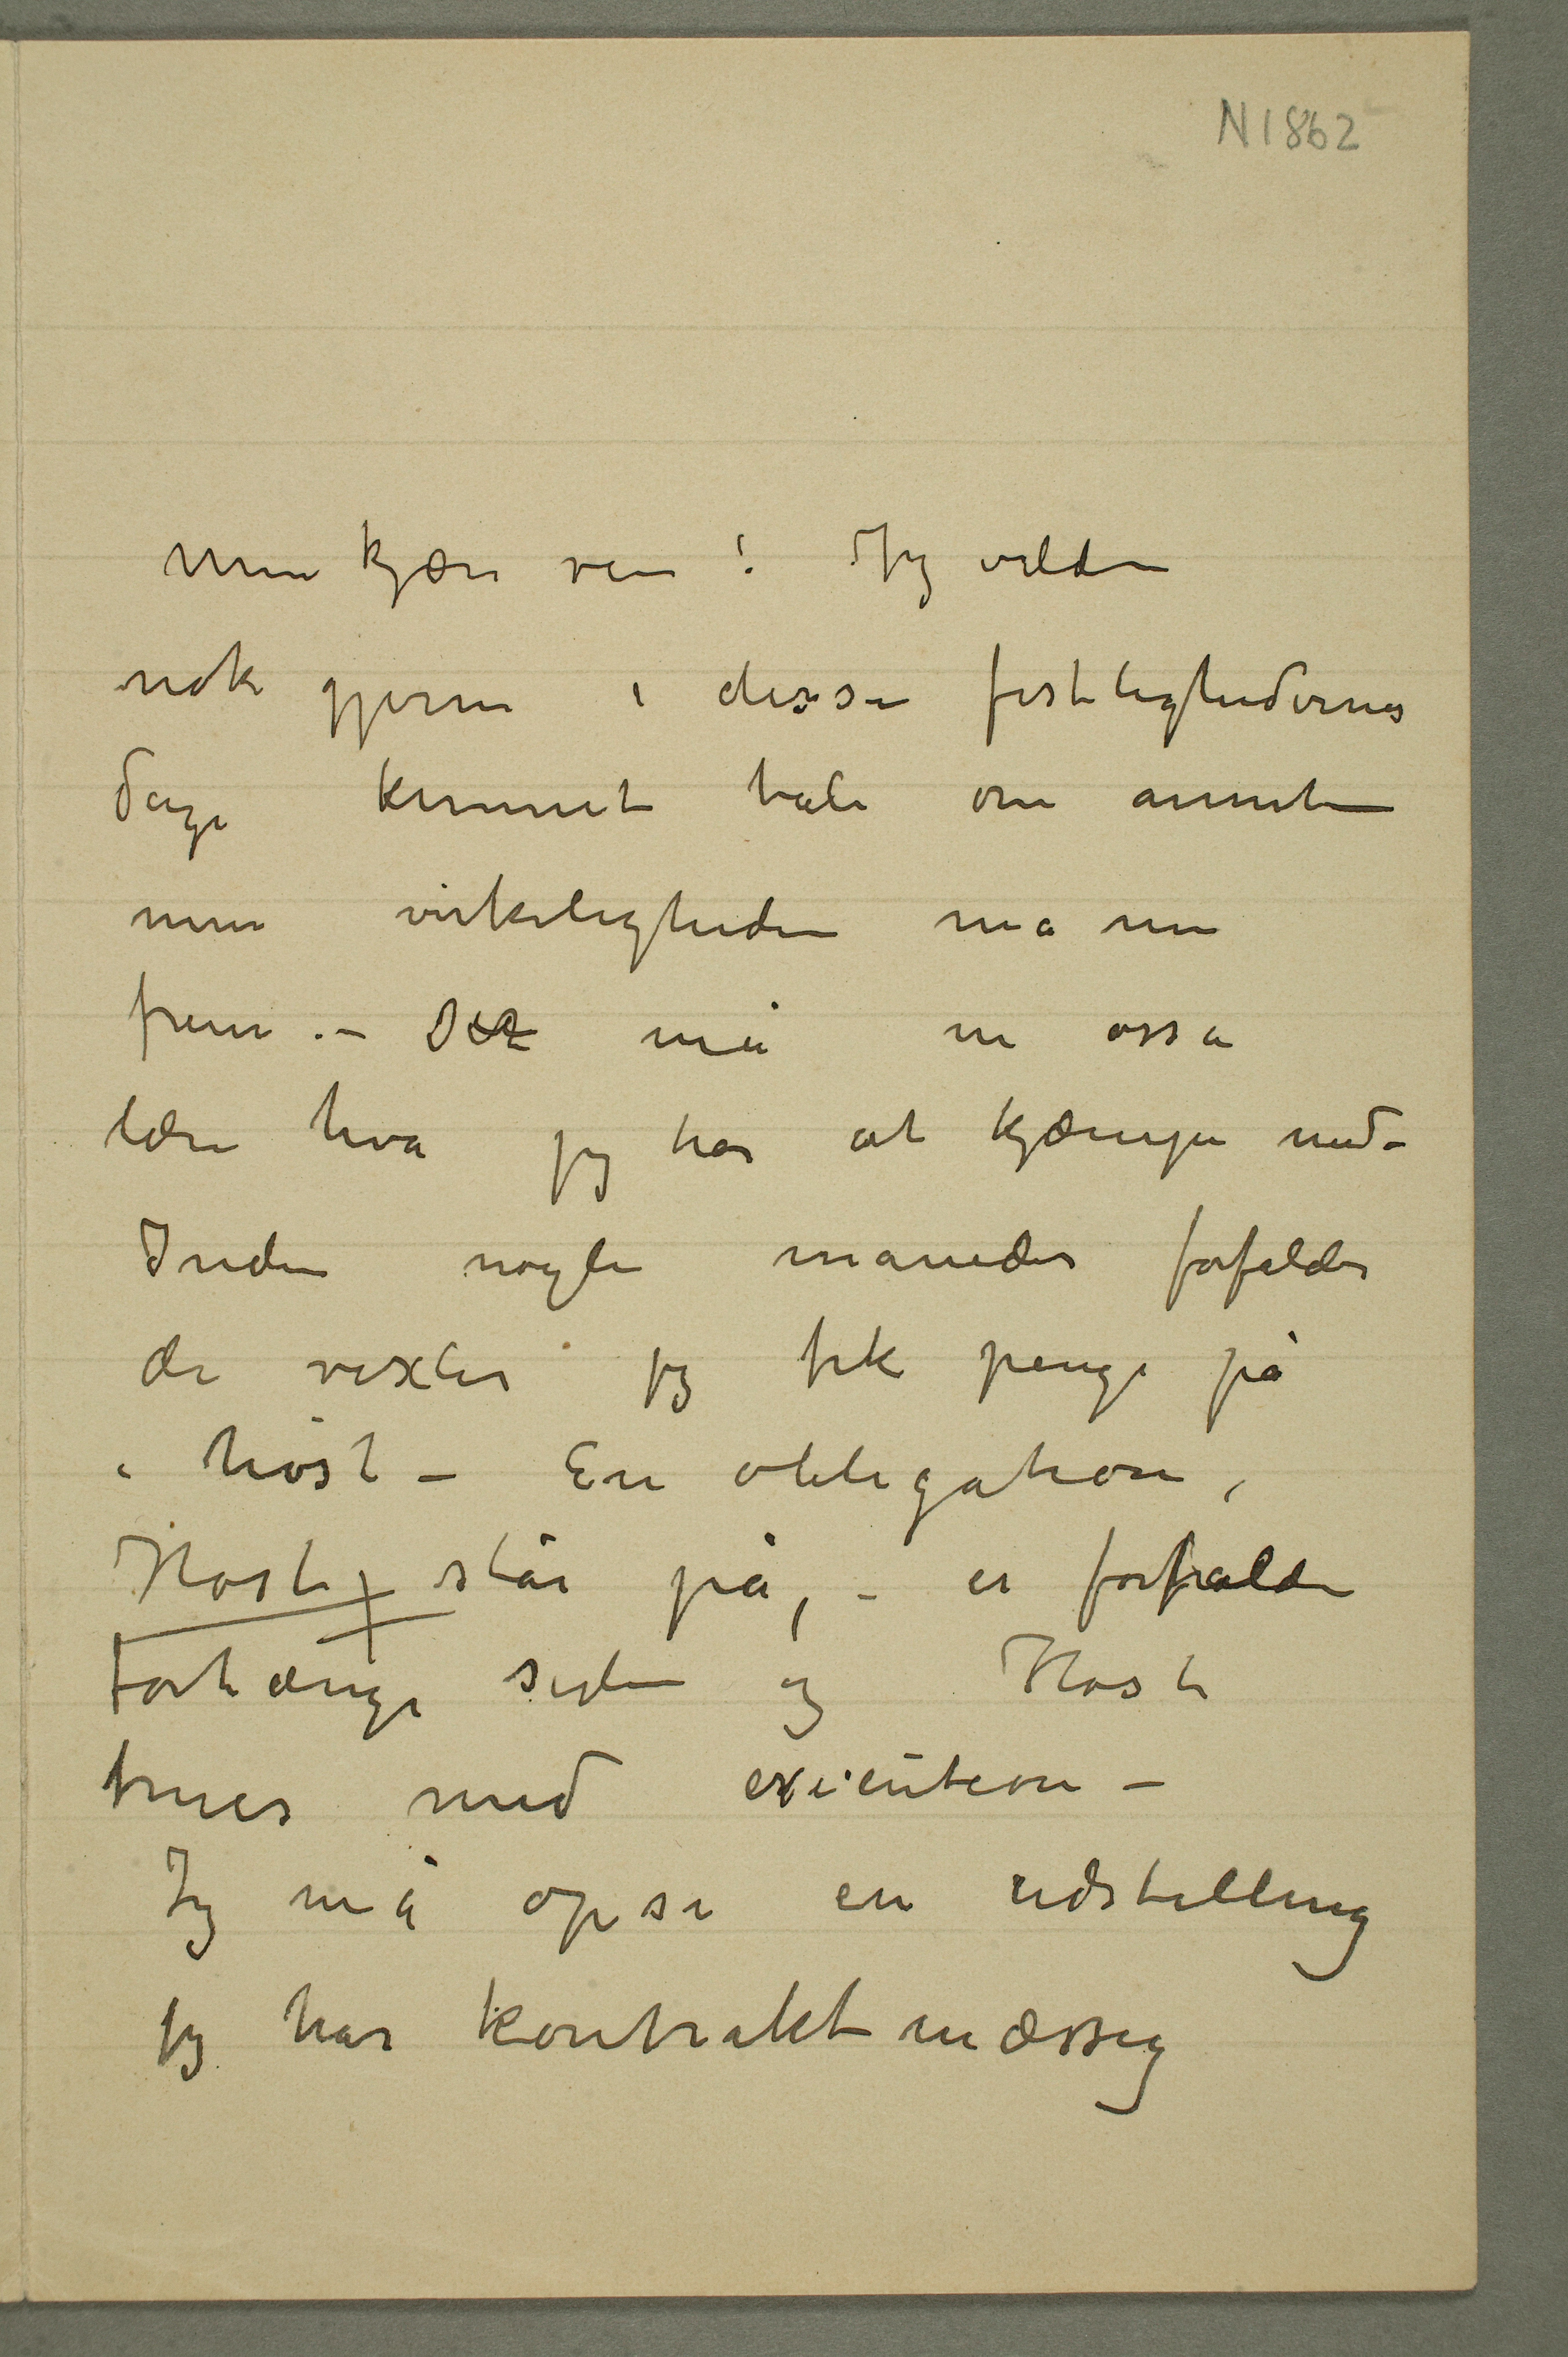 N 1862
Min kjære ven! Jeg vilde
nok gjerne i disse festlighedernes
dage kunnet tale om annet
men virkeligheden må nu
frem. – Det må nu osså
lære hva jeg har at kjæmpe med –
Inden nogle måneder forfalder
de vexler jeg fik penge på
i høst – En obligation,
Høst står på, – er forfalden
for længe siden og Høst
trues med execution –
Jeg må opsi en udstilling
jeg har kontraktmæssig